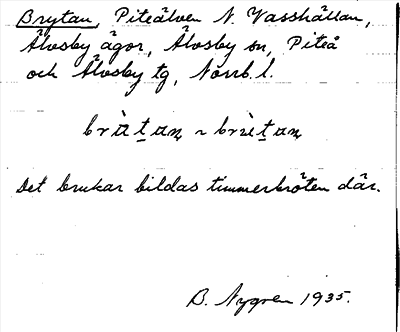 Brytan, Piteälven N. Vasshällan,
Älvsby ägor, Älvsby sn, Piteå
och Älvsby tg, Norrb. l.
Det brukar bildas timmerbröten där.
B. Nygren 1935.